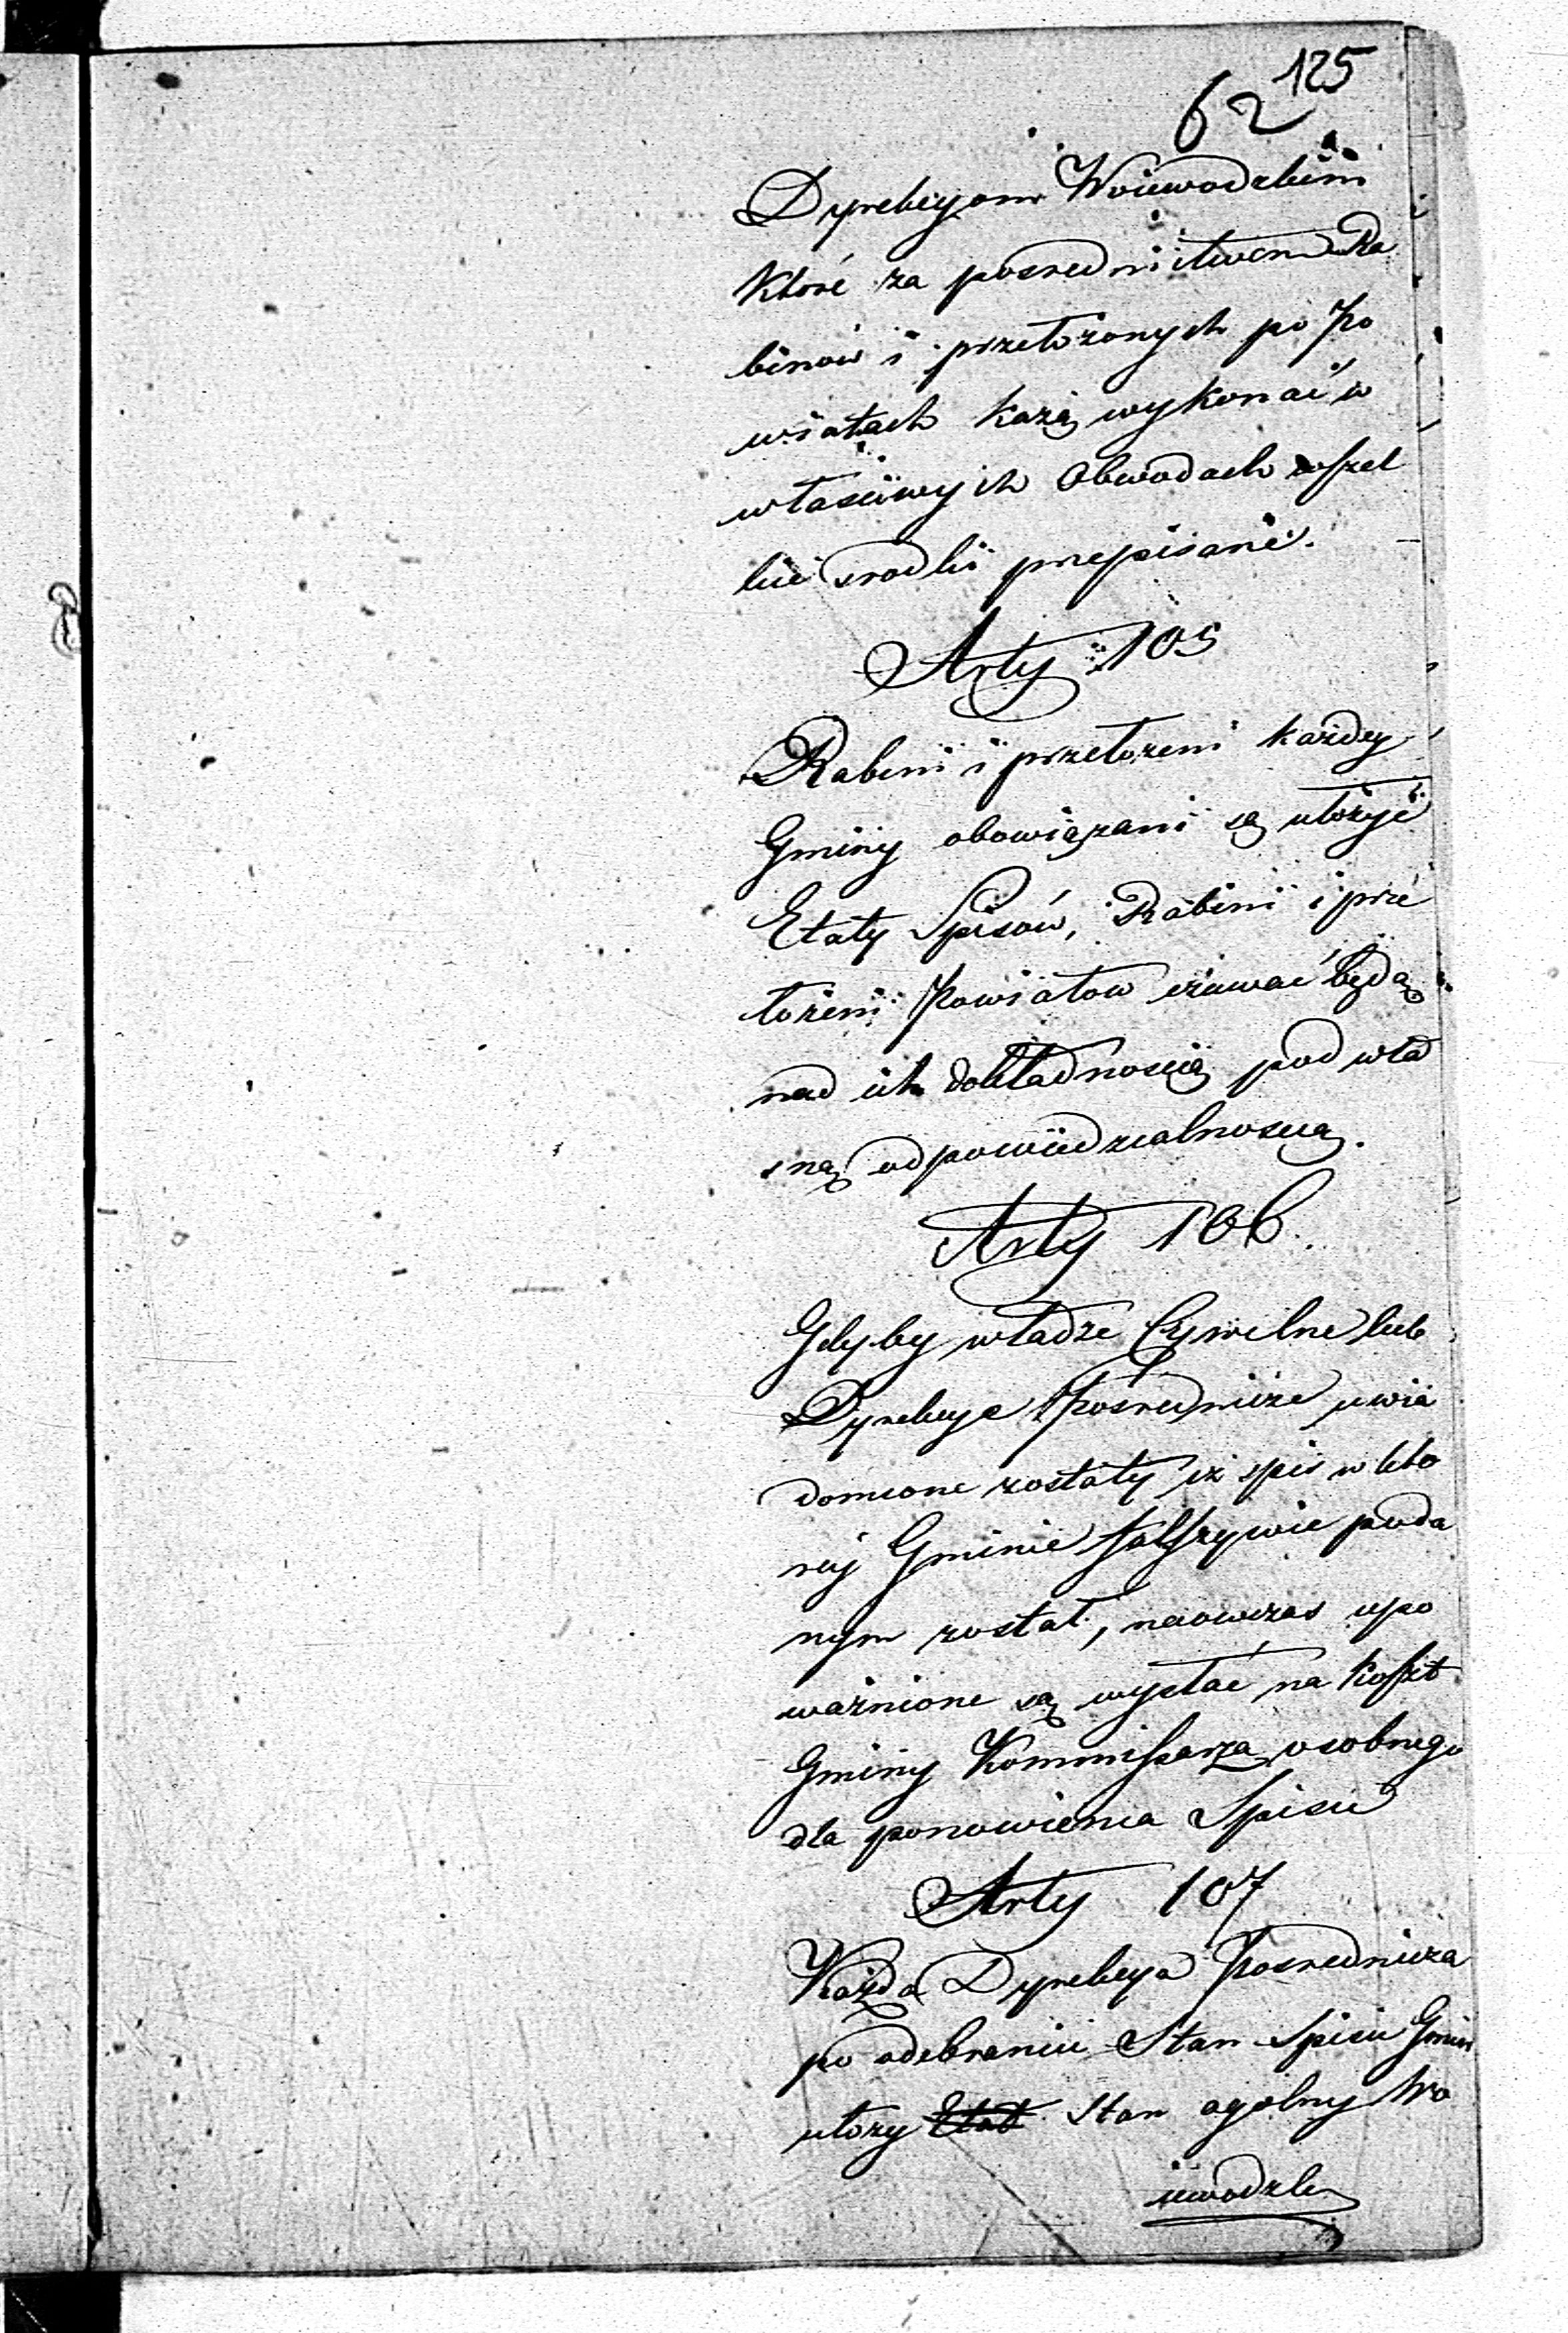 125
62
Dyrekcyom Woiewodzkim
Które za posrednictwem Ra
binów i przełożonych po Po
wiatach każą wykonać w
właściwych Obwodach wszel
kie srodki przepisane.
Arty 105
Rabini i przełożeni każdey
Gminy obowiązani są ułożyć
Etaty Spisów, Rabini i prze
łożeni Powiatow czuwać będą
nad ich dokładnoscią pod wła
sną odpowiedzialnoscią.
Arty 106.
Gdyby władze Cywilne lub
Dyrekcye Pośrednicze uwia
domione zostały iż spis w któ
rej Gminie fałszywie poda
nym został, naowczas upo
ważnione są wysłać na koszt
Gminy Kommissarza osobnego
dla ponowienia Spisu
Arty 107
Każda Dyrekcya Posrednicza
po odebraniu Stan Spisu Gmin
ułozy Etat Stan ogolny Wo
iewodzki